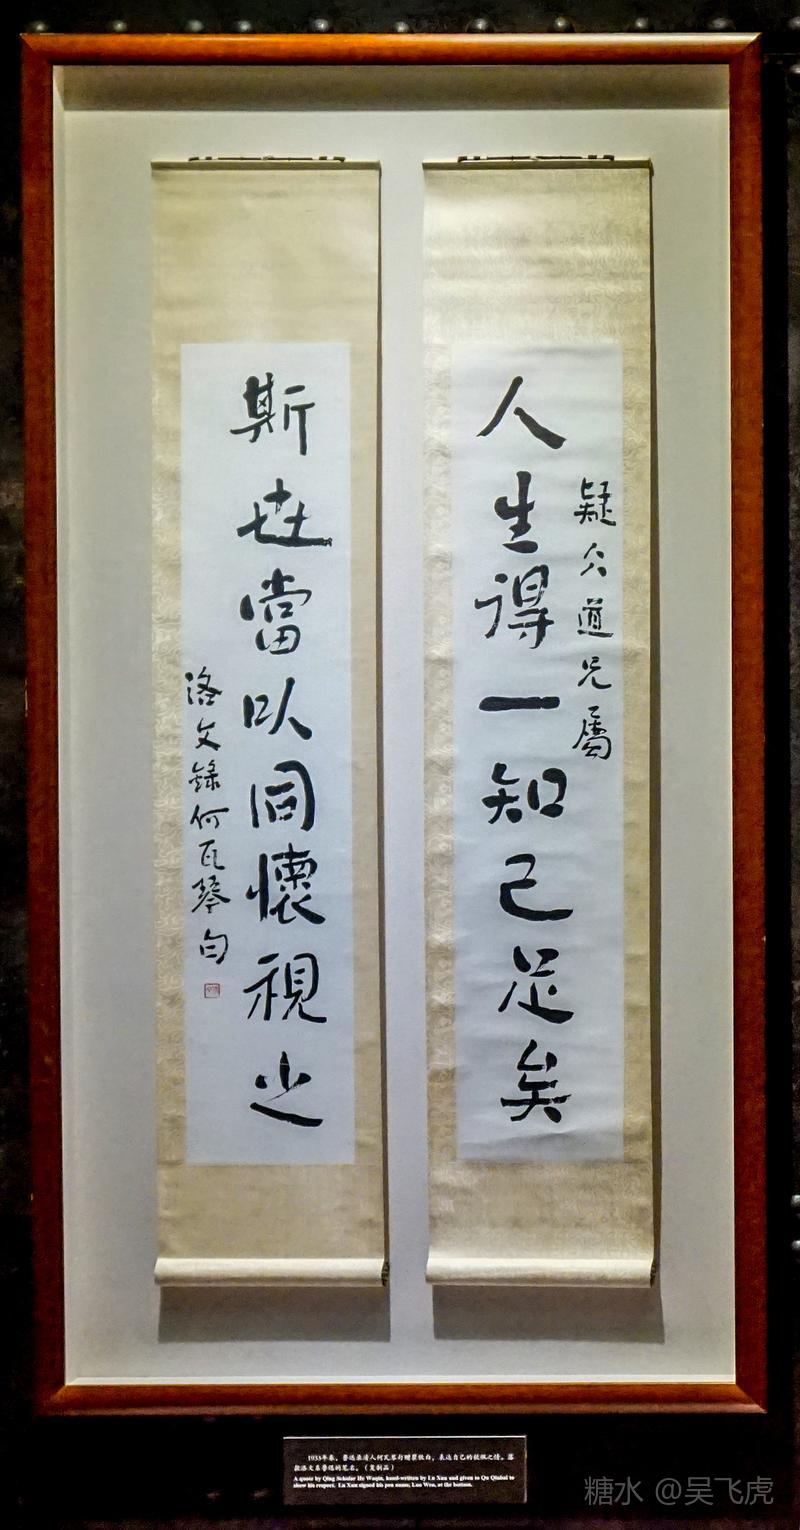 疑仌道兄屬
人生得一知己足矣
斯世當以同懷視之
洛文錄何瓦琴句
1933年春，鲁迅录清人何瓦琴句赠瞿秋白，表达自己的钦佩之情。落
款洛文系鲁迅的笔名。（复制品）
A quote by Qing Scholar He Waqin, hand-written by Lu Xun and given to Qu Qiubai to
show his respect. Lu Xun signed his pen name, Luo Wen, at the bottom.
糖水 @吴飞虎